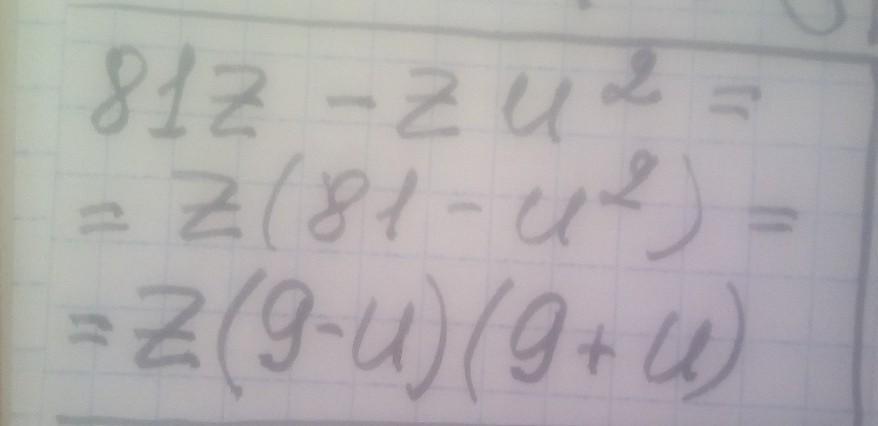 81z - zu² =
= z(81 - u²) =
= z(9-u)(9+u)